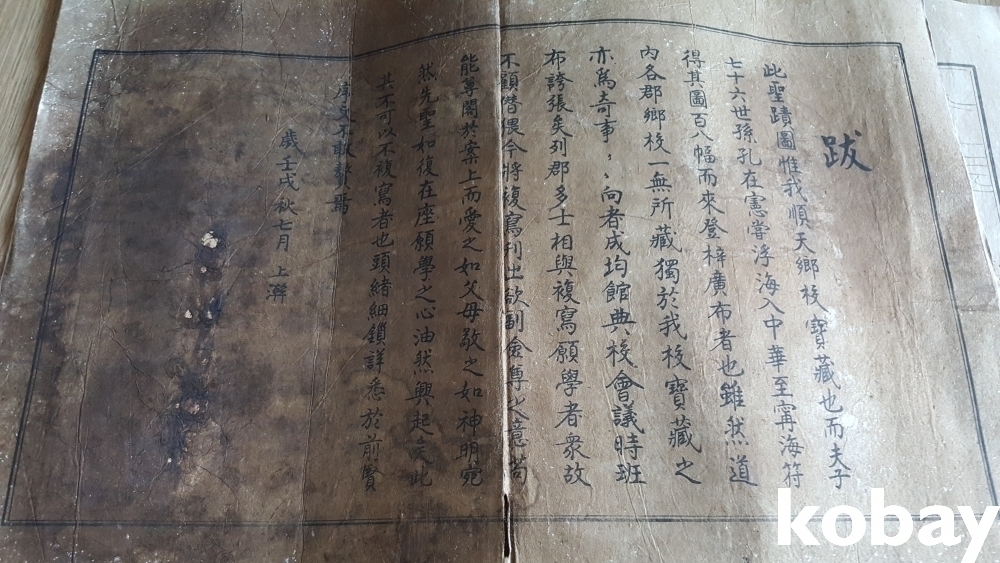 跋
此聖蹟圖惟我順天鄉校寶藏也而夫子
七十六世孫孔在憲嘗浮海入中華至甯海符
得其圖百八幅而來登梓廣布者也雖然道
內各郡鄉校一無所藏獨於我校寶藏之
亦爲奇事〻向者成均館典校會議時班
布誇張矣列郡多士相與複寫願學者衆故
不顧僭猥今將複寫刊出欲副僉尊之意苟
能尊閣於案上而愛之如父母敬之如神明宛
然先聖如復在座願學之心油然興起矣此
其不可以不複寫者也頭緖細鎖詳悉於前賢
序文不敢贅焉
歲壬戌秋七月 上澣
kobay